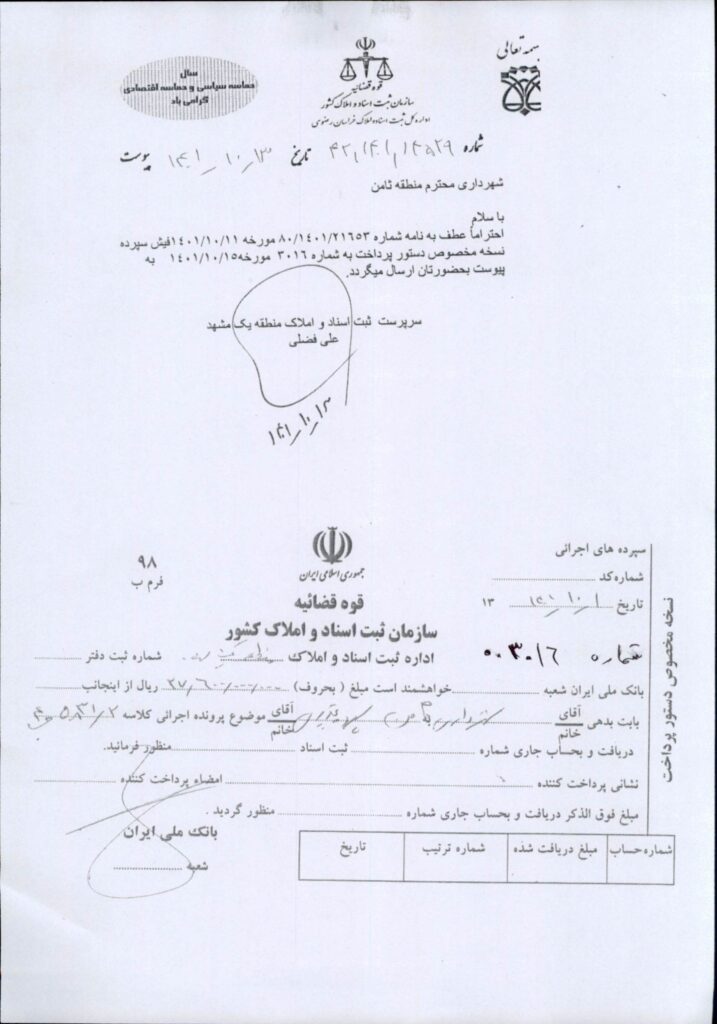 بسمه تعالی
سال
حماسه سیاسی و حماسه اقتصادی
گرامی باد
قوه قضائیه
سازمان ثبت اسناد و املاک کشور
اداره کل ثبت اسناد و املاک خراسان رضوی
شماره تاریخ ۱۴۰۱/۱۰/۱۳ پیوست
شهرداری محترم منطقه ثامن
با سلام
احتراماً عطف به نامه شماره ۸۰/۱۴۰۱/۲۱۶۵۳ مورخه ۱۴۰۱/۱۰/۱۱ فیش سپرده
نسخه مخصوص دستور پرداخت به شماره ۳۰۱۶ مورخه ۱۴۰۱/۱۰/۱۵ به
پیوست بحضورتان ارسال میگردد.
سرپرست ثبت اسناد و املاک منطقه یک مشهد
علی فضلی
۱۴۰۱/۱۰/۱۳
۹۸
فرم ب
جمهوری اسلامی ایران
قوه قضائیه
سازمان ثبت اسناد و املاک کشور
سپرده های اجرائی
شماره کد
تاریخ ۱۳
شماره ۰۰۳۰۱۶ اداره ثبت اسناد و املاک شماره ثبت دفتر
بانک ملی ایران شعبه خواهشمند است مبلغ ( بحروف) ریال از اینجانب
بابت بدهی آقای خانم آقای خانم موضوع پرونده اجرائی کلاسه
دریافت و بحساب جاری شماره ثبت اسناد منظور فرمائید.
نشانی پرداخت کننده امضاء پرداخت کننده
مبلغ فوق الذکر دریافت و بحساب جاری شماره منظور گردید .
بانک ملی ایران
شعبه
شماره حساب مبلغ دریافت شده شماره ترتیب تاریخ
نسخه مخصوص دستور پرداخت